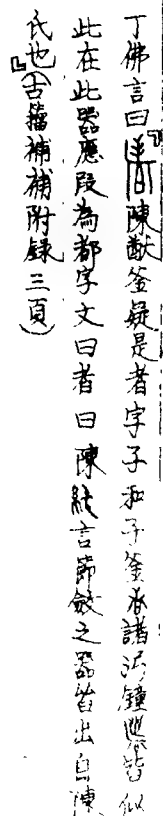 丁佛言曰『陳猷釜疑是者字子和子釜者諸沪鐘皆似
此在此器應段為都字文曰者曰陳純言節鈙之器皆出自陳
氏也』（古籀補補附錄三頁）